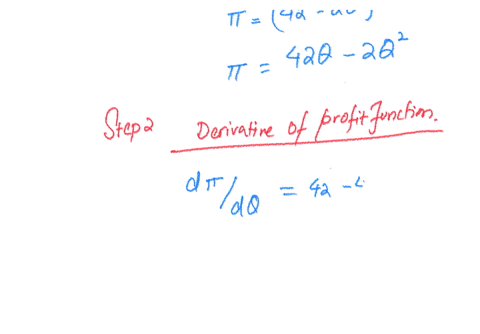 π = (42 -
π = 42Q - 2Q²
Step 2 Derivative of profit function.
dπ/dQ = 42 -